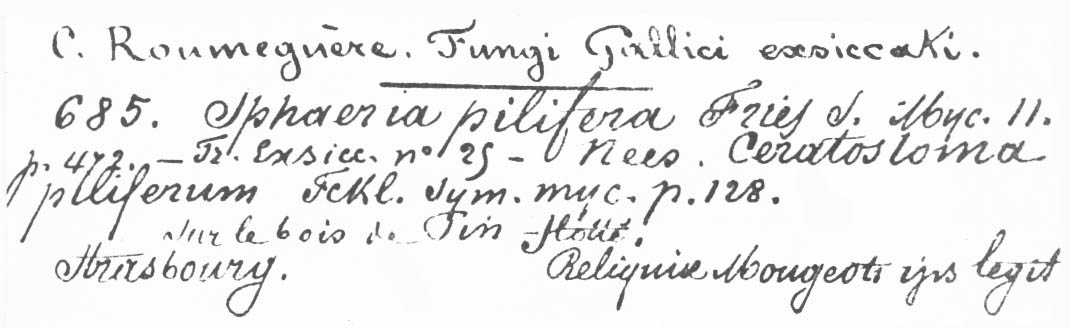 C. Roumeguère. Fungi Gallici exsiccati.
685. Sphaeria pilifera Fries S. Myc. 11.
p. 472. — Fr. Exsicc. nº 25 — Nees. Ceratostoma
piliferum Fckl. Sym. myc. p. 128.
Sur le bois de Pin
Strasbourg. Reliquiæ Mougeoti ips legit